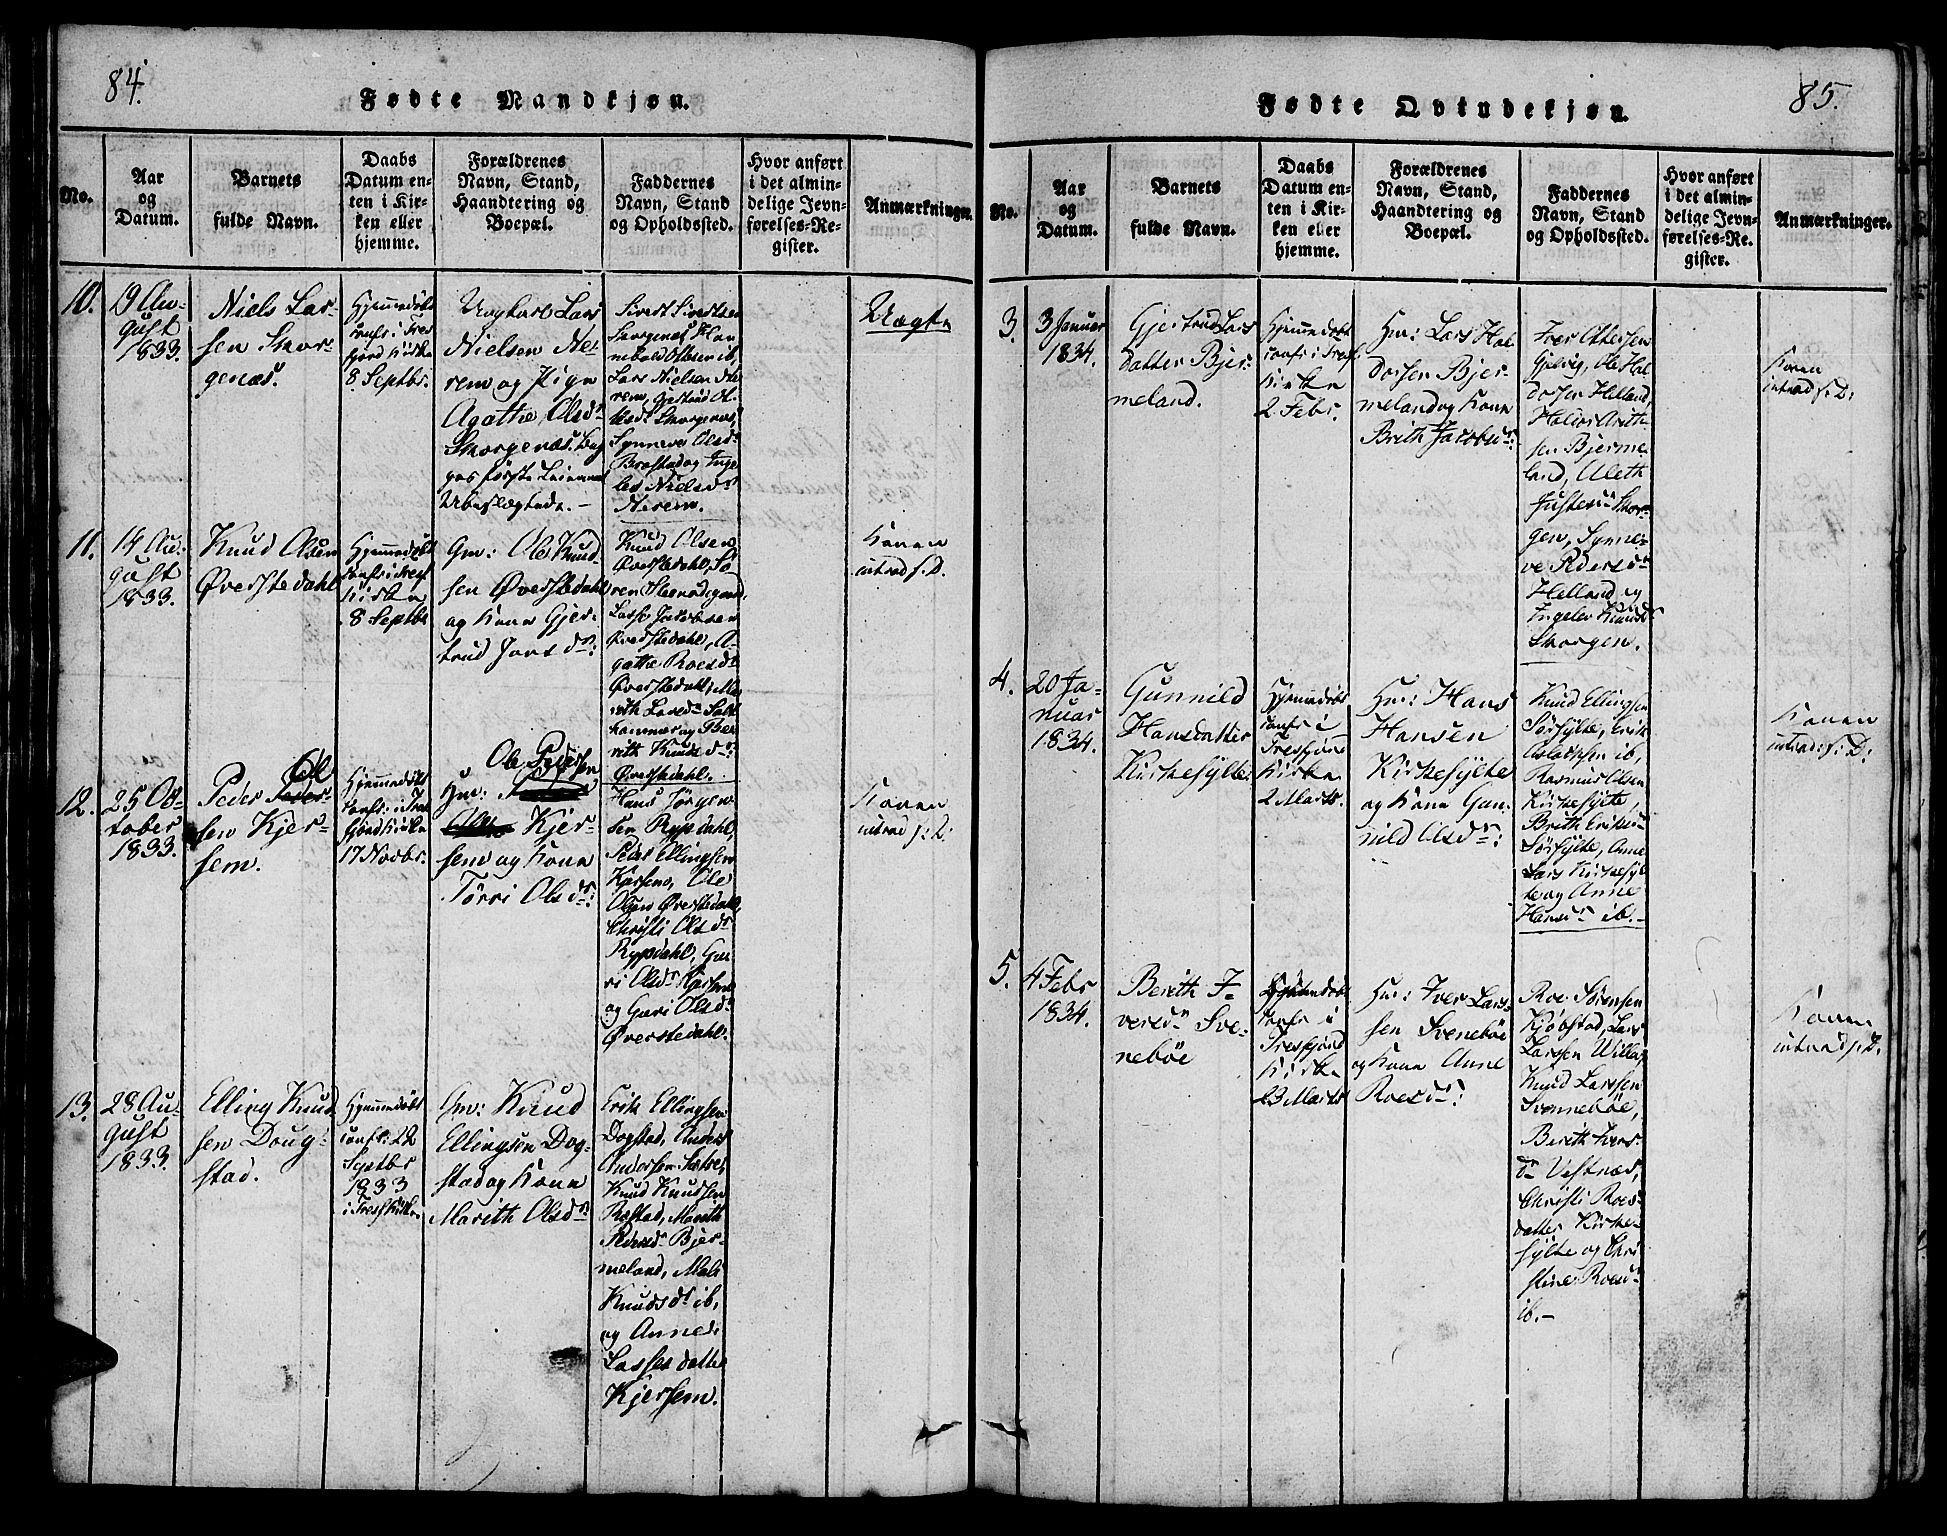 84.
Fødte Mandkjøn.
No.
Aar
og
Datum.
Barnets
fulde Navn.
Daabs
Datum en-
ten i Kir-
ken eller
hjemme.
Forældrenes
Navn, Stand,
Haandtering og
Boepæl.
Faddernes
Navn, Stand
og Opholdssted.
Hvor anført
i det almin-
delige Jevn-
førelses-Re-
gister.
Anmærkninger.
10.
19 Au-
gust
1833.
Niels Lar-
sen Skor-
genæs.
Hjemmedøbt
conf: i Tres-
fjord Kirke
8 Septbr.
Ungkarl Lars
Nielsen Ne-
rem og Pige
Agathe Olsdr
Skorgenæs. Beg-
ges første Leiermaal
Ubeslægtede. -
Sivert Sivertsen
Skorgenæs,
Ole Olsen ib,
Lars Nielsen Ne-
rem, Gjertrud Ol-
dr Skorgenæs,
Synneve Olsdr
Brastad og Inge-
leb Nielsdr
Nerem.
Uægte
11.
14 Au-
gust
1833.
Knud Olsen
Øverstedahl
Hjemmedøbt
conf: i Tresf
Kirke
8 Septbr
Gm: Ole Knud-
sen Øverstedahl
og Kone Gjer-
trud Jonsdr:
Knud Olsen
Øverstedahl, Sø-
ren
Lasse Jacobsen
Øverstedahl, A-
gathe Roesdr
Øverstedahl, Ma-
rith Larsdr
og Be-
rith Knudsdr:
Øverstedahl.
Konen
introd s: D.
12.
25 Oc-
tober
1833.
Ole
Peder Peder-
sen Kjer-
sem.
Hjemmedøbt
conf: i Tres-
fjord Kirke
17 Novbr.
Ole Pedersen
Hm:
Olsen Kjer-
sem og Kone
Tørri Olsdr:
Hans Jørgen-
sen Rypdahl,
Peder Ellingsen
Kjersem, Ole
Olsen Øverstedahl,
Christi Olsdr
Rypdahl, Gu-
ri Olsdr Kjersem
og Guri Olsdr
Øverstedahl.
Konen
introd s: D:
13.
28 Au-
gust
1833.
Elling Knud-
sen Doug-
stad.
Hjemmedøbt
conf: 22
Septbr
1833
i Tresf Kirke
Gm: Knud
Ellingsen Dog-
stad og Kone
Marith Olsdr
Erik Ellingsen
Dogstad, Anders
Andersen Sætre,
Knud Knudsen
Rastad, Marith
Pedersdr Bjer-
meland, Mali
Knudsdr ib,
og Anne
Lasses datter
Kjersem.
85.
Fødte Qvindekjøn.
No.
Aar
og
Datum.
Barnets
fulde Navn.
Daabs
Datum en-
ten i Kir-
ken eller
hjemme.
Forældrenes
Navn, Stand,
Haandtering og
Boepæl.
Faddernes
Navn, Stand
og Opholdssted.
Hvor anført
i det almin-
delige Jevn-
førelses-Re-
gister.
Anmærkninger.
3.
3 Januar
1834.
Gjertrud Lars
datter Bjer-
meland.
Hjemmedøbt
conf: i Tresf
Kirke
2 Febr.
Hm: Lars Hal-
dorsen Bjer-
meland og Kone
Brith Jacobsdr:
Iver Ottersen
Gjelvig, Ole Hal-
dorsen Helland,
Haldor
sen Bjerme-
land, Aleth
Skor-
gen, Synne-
ve Pedersdr
Helland og
Ingeleb Knudsdr
Skorgen.
Konen
introd s: D:
4.
20 Ja-
nuar
1834.
Gunnild
Hansdatter
Kirkesylte
Hjemmedøbt
conf: i
Tresfjord
Kirke
2 Marts.
Hm: Hans
Hansen
Kirkesylte
og Kone Gun-
nild Olsdr:
Knud Ellingsen
Sørsylte, Erik
Aslaksen ib,
Rasmus Olsen
Kirkesylte,
Brith Eriksdr
Sørsylte, Anne
Lars Kirkesyl-
te og Anne
Hansdr ib. -
Konen
introd: s: D:
5.
4 Febr
1834.
Berith I-
versdr Sve-
nebøe
Hjemmedøbt
conf: i
Tresfjord
Kirke
23 Marts
Hm: Iver Lar-
sen Svenebøe
og Kone Anne
Roesdr:
Roe Sørensen
Kjøbstad, Lars
Larssen Willa,
Knud Larssen
Svennebøe,
Berith Ivers-
dr Vestnæs,
Christi Roes-
datter Kirke-
sylte og Chri-
stine Roesdr
ib. -
Konen
introd s: D.